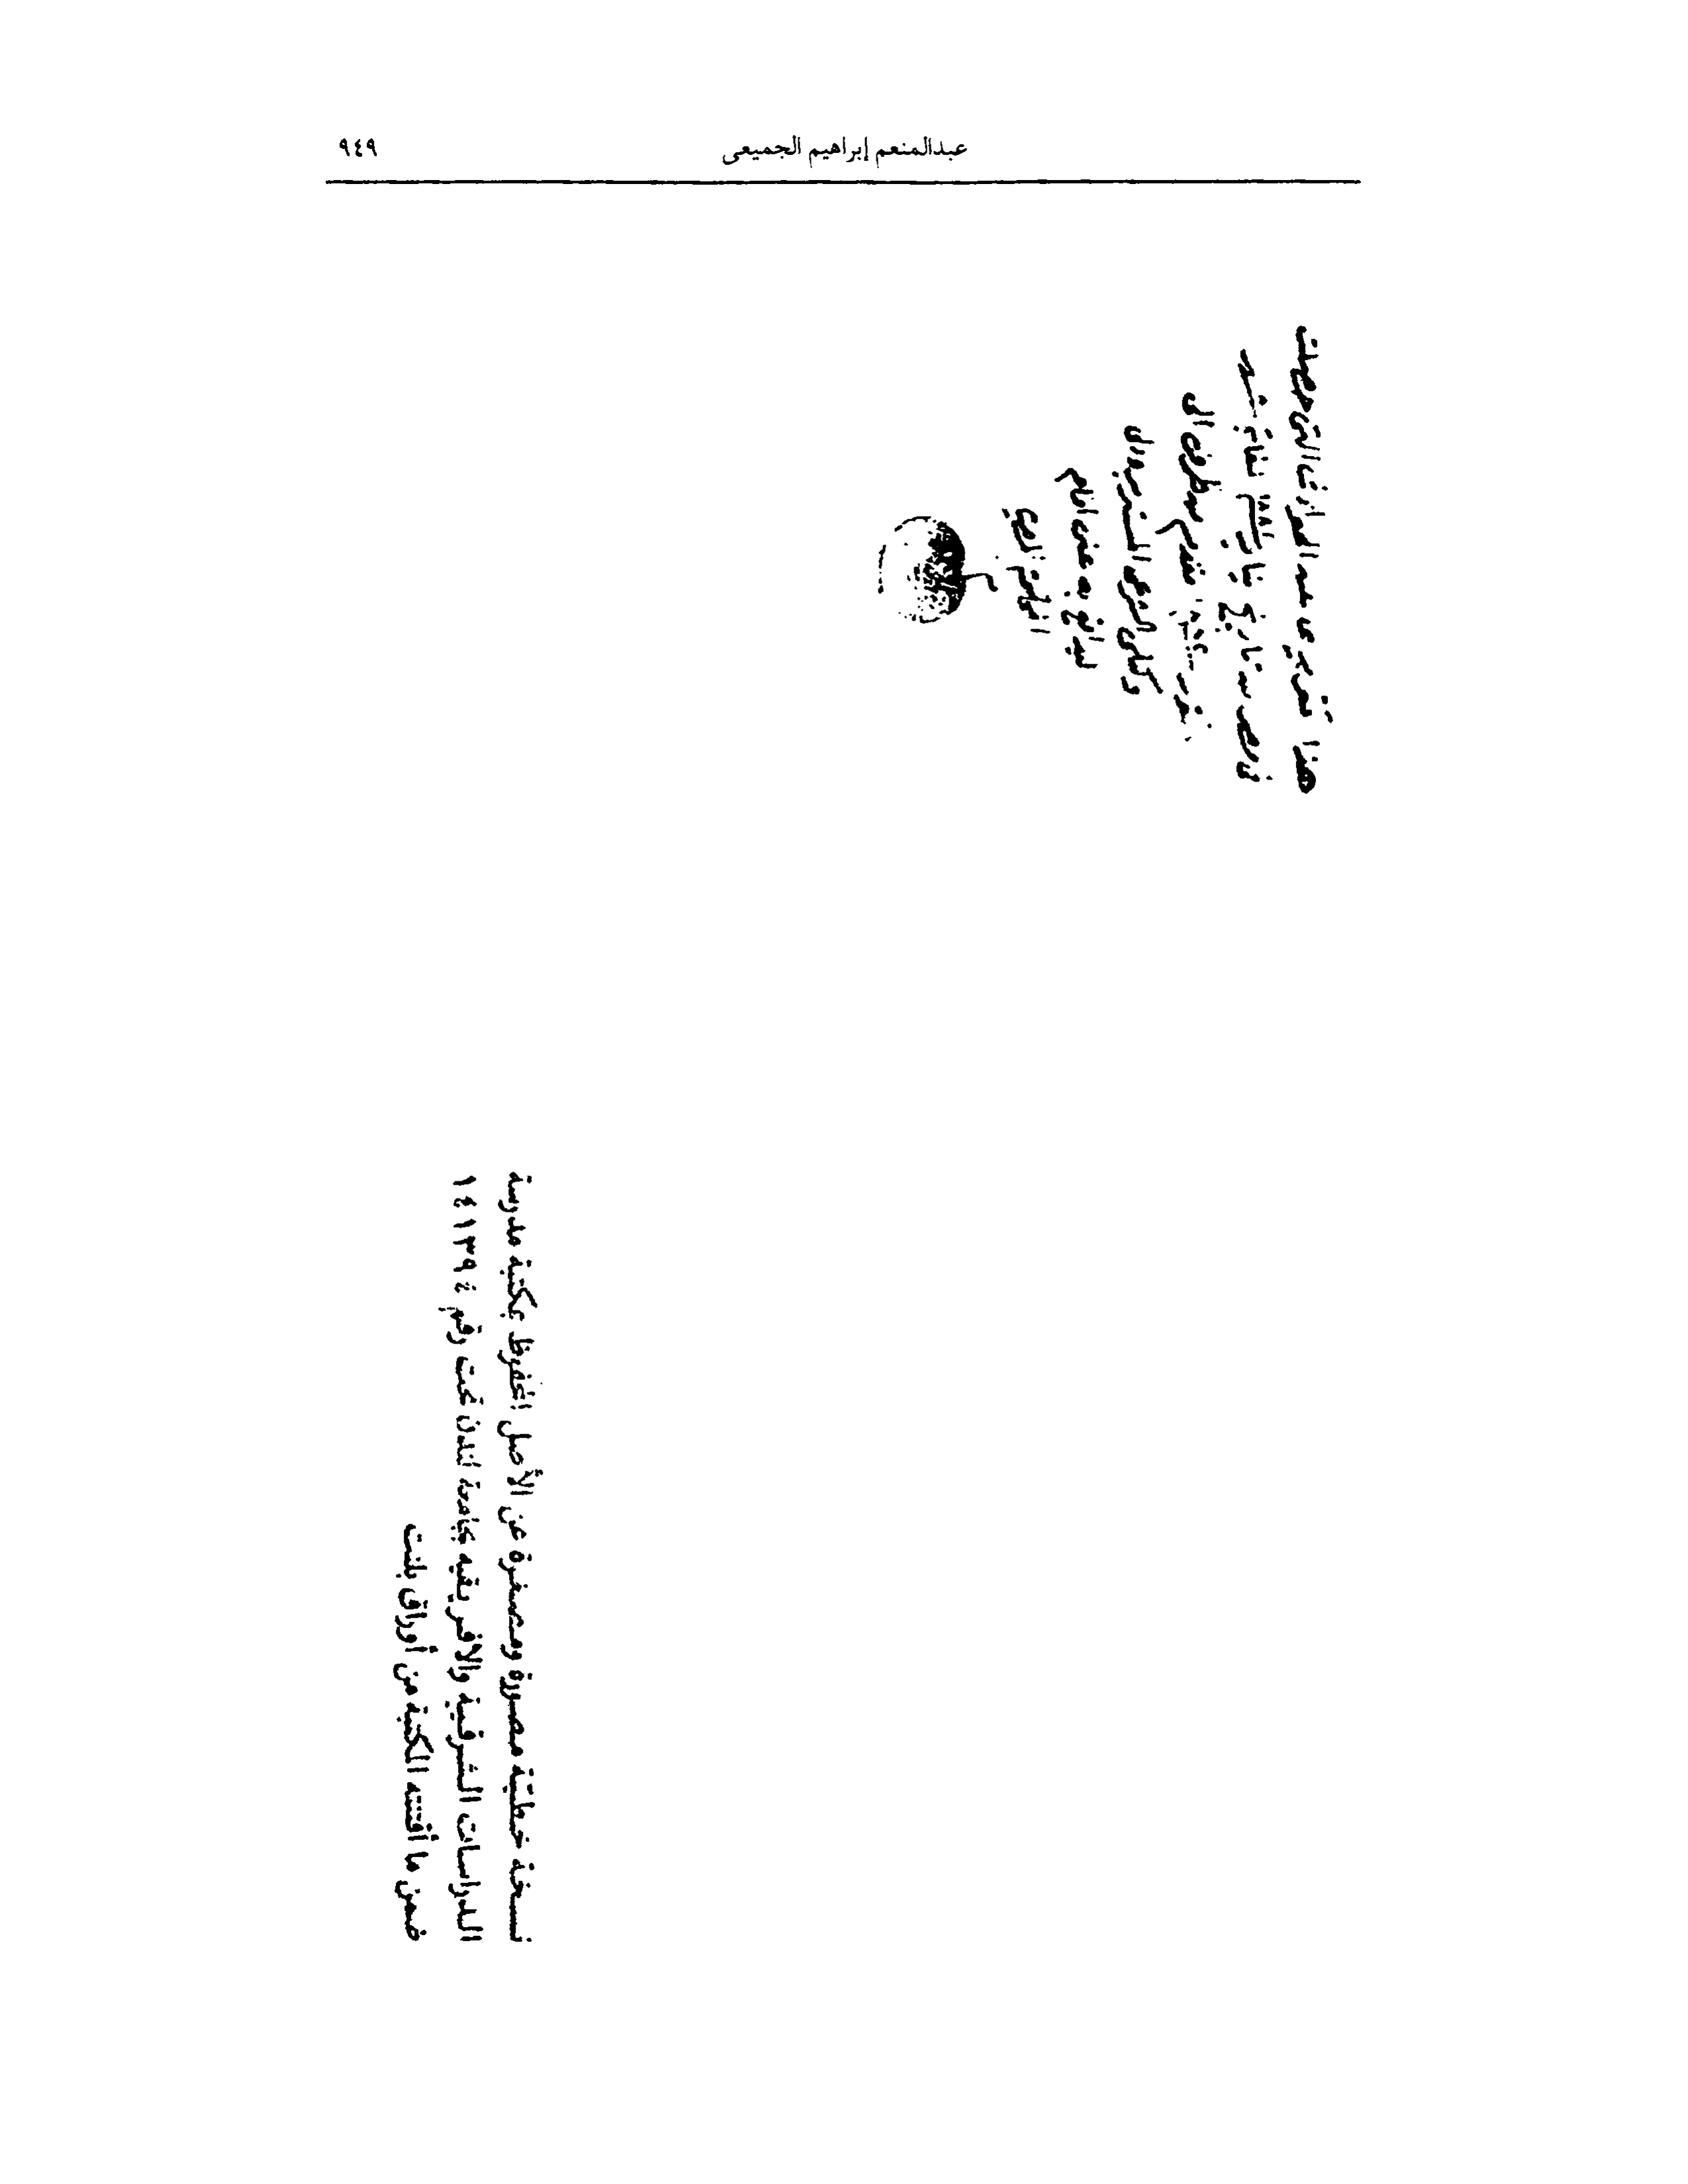 عبدالمنعم إبراهيم الجميعى
٩٤٩
هذا تقريرى عن الحوادث التى حصلت
من تاريخ يناير ١٨٨١ لغاية شهر
مقدم من طرفى الى
وكيلى المستر برودلى
ليدافع به عنى امام
نسخة خطيّة مصورة ومصغرة عن الأصل المحفوظ بمكتبة مدرسة
الدراسات الشرقية والافريقيه بجامعة لندن تحت رقم ١٤١٣٩٤
ضمن ما أقتنته المكتبة من أوراق بلنت